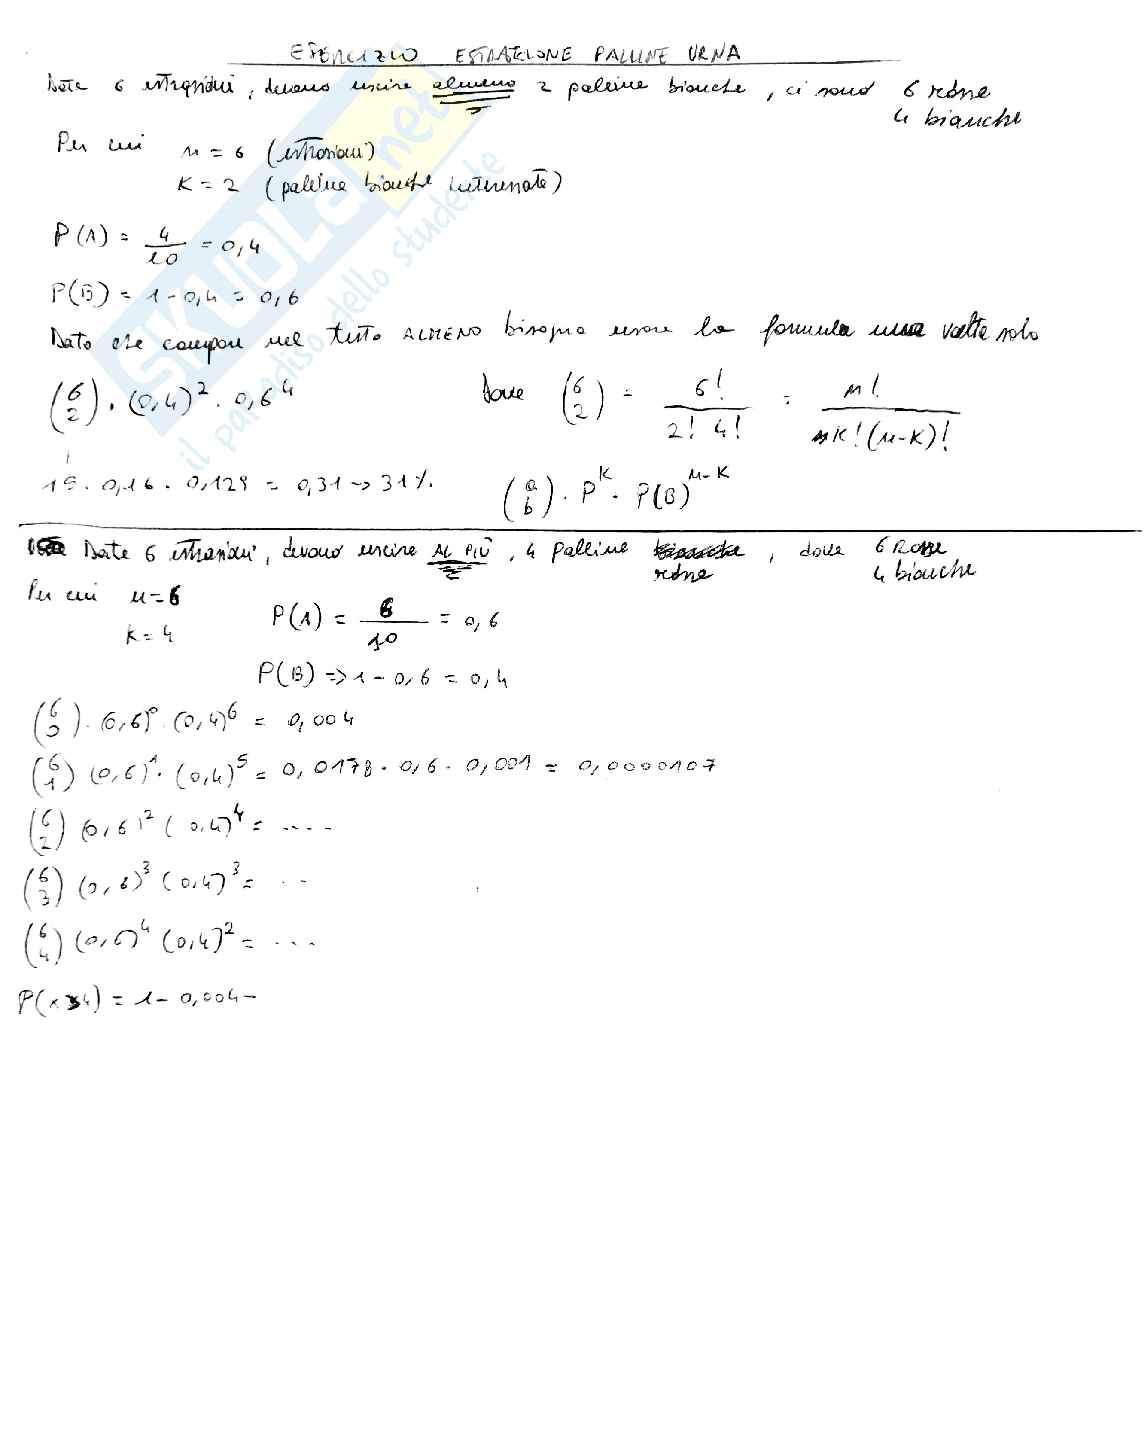 ESERCIZIO ESTRAZIONE PALLINE URNA
Date 6 estrazioni, devono uscire almeno 2 palline bianche, ci sono 6 rosse
4 bianche
Per cui n = 6 (estrazioni)
K = 2 (palline bianche interessate)
P(A) = 4/10 = 0,4
P(B) = 1 - 0,4 = 0,6
Dato che compare nel testo ALMENO bisogna usare la formula una volta sola
(6 2) · (0,4)² · 0,6⁴ Dove (6 2) = 6!/(2! 4!) = n!/(K!(n-K)!)
15 · 0,16 · 0,129 = 0,31 → 31%
(a b) · P^K · P(B)^(n-K)
Date 6 estrazioni, devono uscire AL PIÙ, 4 palline rosse, dove 6 Rosse
4 bianche
Per cui n=6
K=4
P(A) = 6/10 = 0,6
P(B) => 1 - 0,6 = 0,4
(6 0) · (0,6)⁰ · (0,4)⁶ = 0,004
(6 1) (0,6)¹ · (0,4)⁵ = 0,0178 · 0,6 · 0,001 = 0,0000107
(6 2) (0,6)² (0,4)⁴ = ....
(6 3) (0,6)³ (0,4)³ = ..
(6 4) (0,6)⁴ (0,4)² = ...
P(x 4) = 1 - 0,004 -
SKUOLA.net
il paradiso dello studente